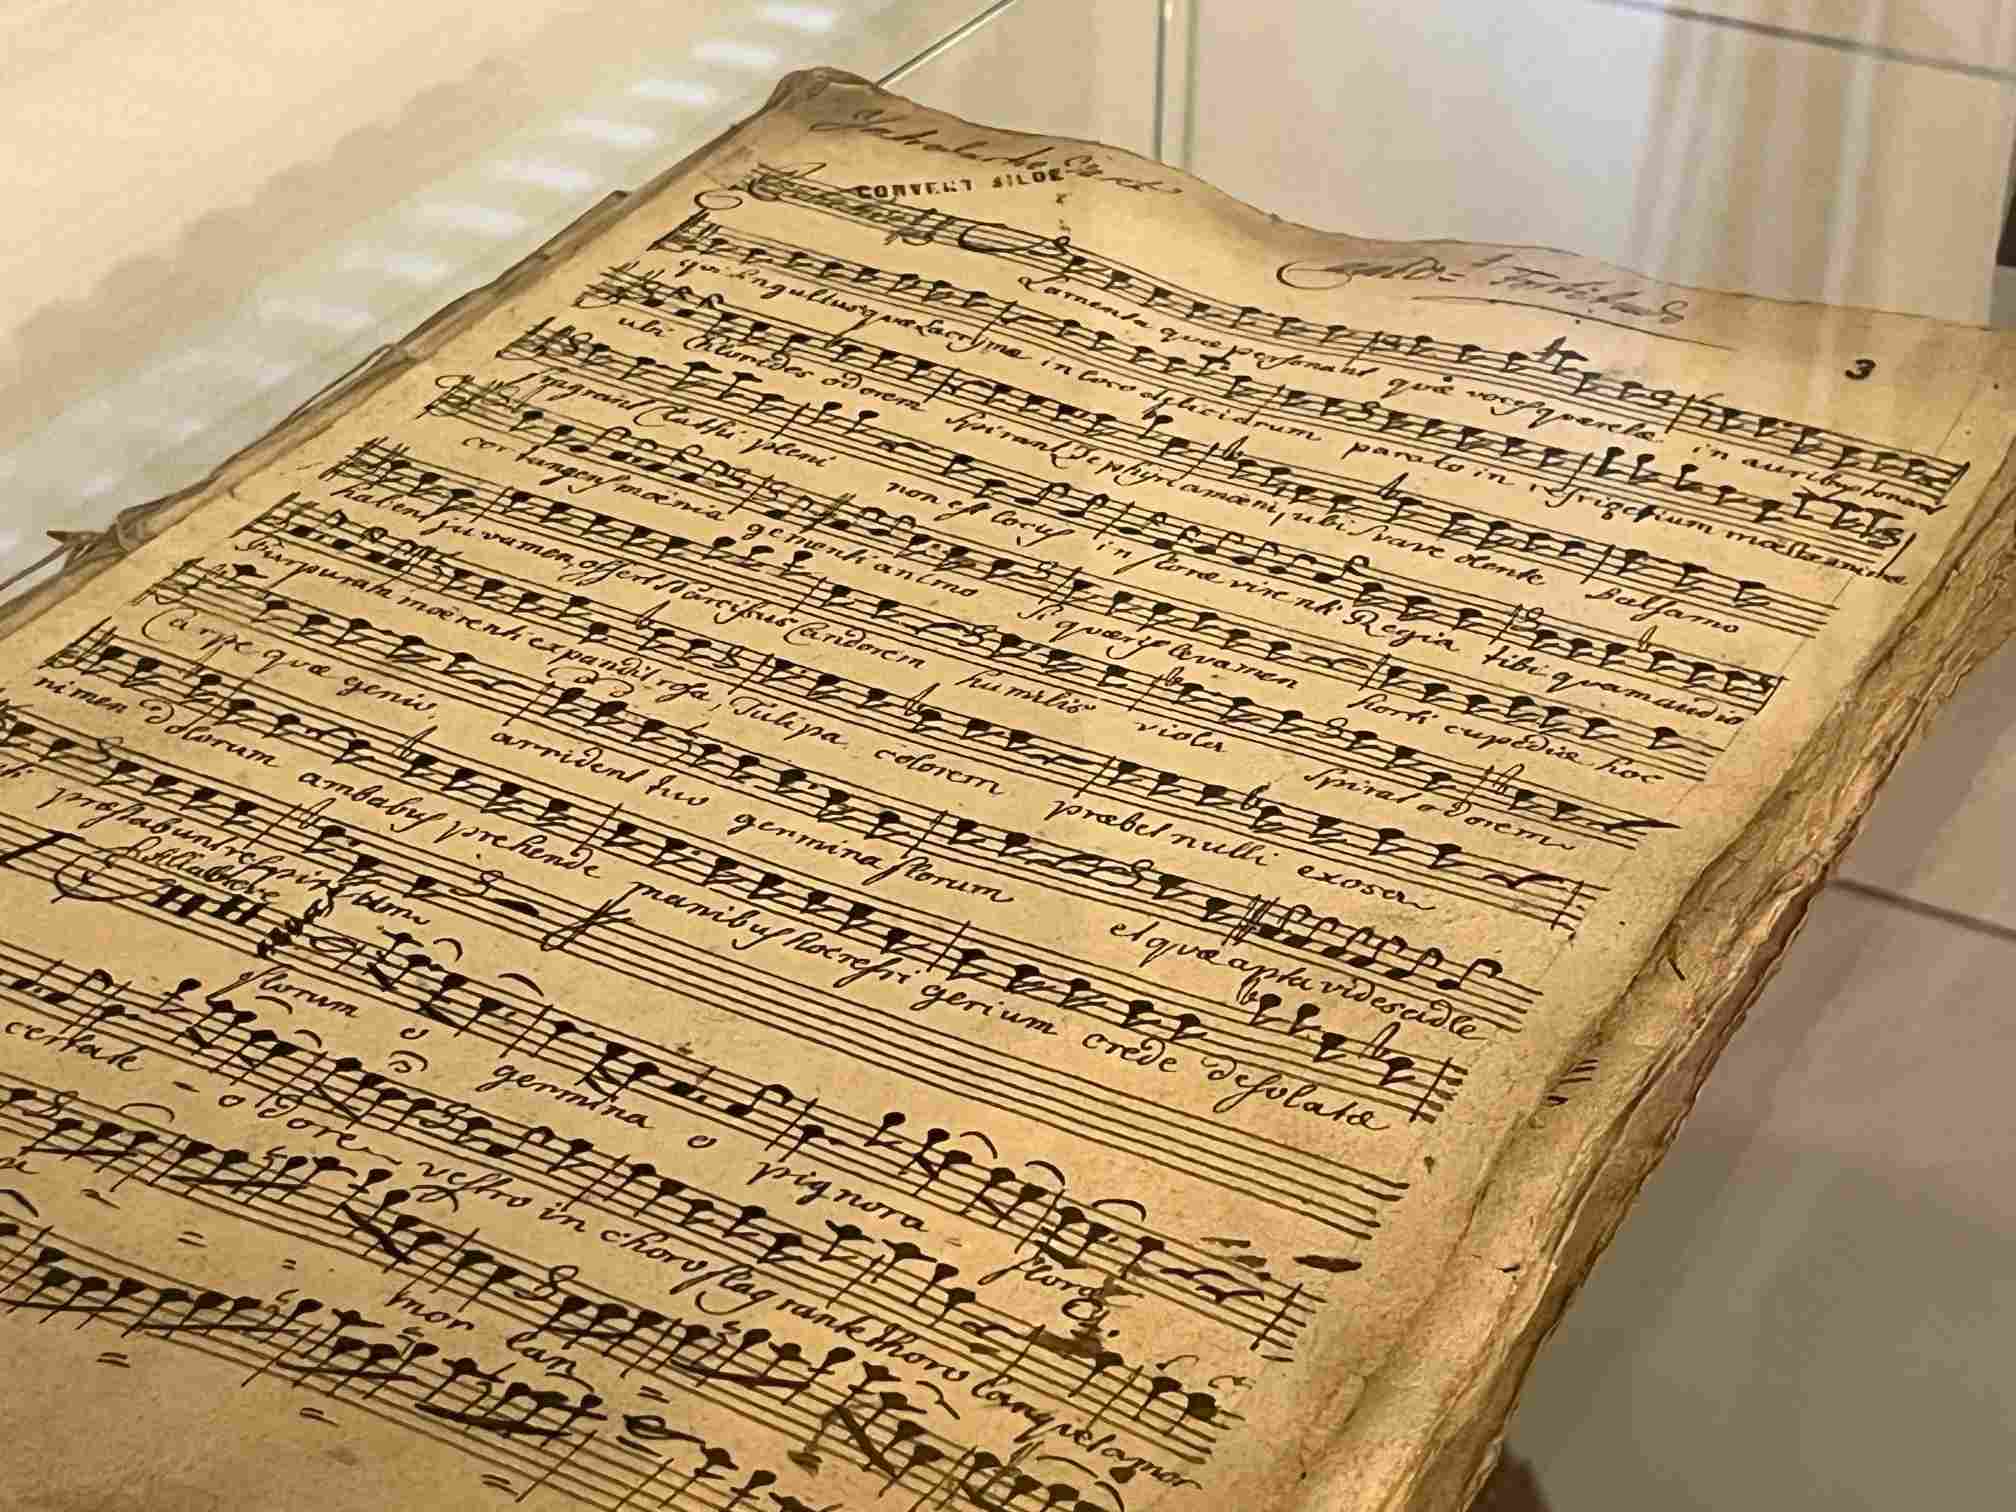 CONVENT SILOE
3
Lamenta quæ personant quæ voces querelæ in auribus sonant
qui singultus quæ Lacrymæ in loco deliciarum parato in refrigerium mæstæ animæ
ubi odorem spirant Zephyri amæni, ubi suave olente Balsamo
pleni non est locus in flore virenti Regia tibi quam audio
cor tangens mænia gementi animo si quæris levamen horti cupediæ hoc
habent juvamen, offert Narcissus Candorem humilis viola spirat odorem
Purpurata mœrenti expandit rosa, Tulipa colorem præbet nulli exosa
Carpe quæ genio, arrident tuo germina florum et quæ apta vides
nimen dolorum ambabus prehende manibus hoc refrigerium crede desolatæ
præstabunt
Allabreve
florum o germina o pignora floræ
certate = o dore vestro in choro flagrante thoro languet amor
= = = mor lan =
= = =